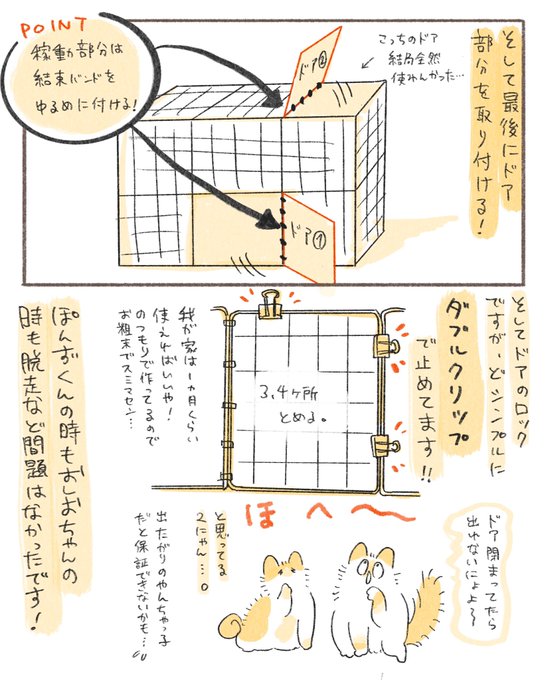 そして最後にドア
部分を取り付ける!
POINT
稼動部分は
結束バンドを
ゆるめに付ける!
ドア②
こっちのドア
結局全然
使わんかった…
ドア①
そしてドアのロック
ですが、どシンプルに
ダブルクリップ
で止めてます!!
3,4ヶ所
とめる。
我が家は1ヵ月くらい
使えればいいや!
のつもりで作ってるので
お粗末でスミマセン…
ぽんずくんの時もおしおちゃんの
時も脱走など問題はなかったです!
ほへ〜
ドア閉まってたら
出れないにょよ〜
と思ってる
2にゃん…。
出たがりのやんちゃっ子
だと保証できないかも…